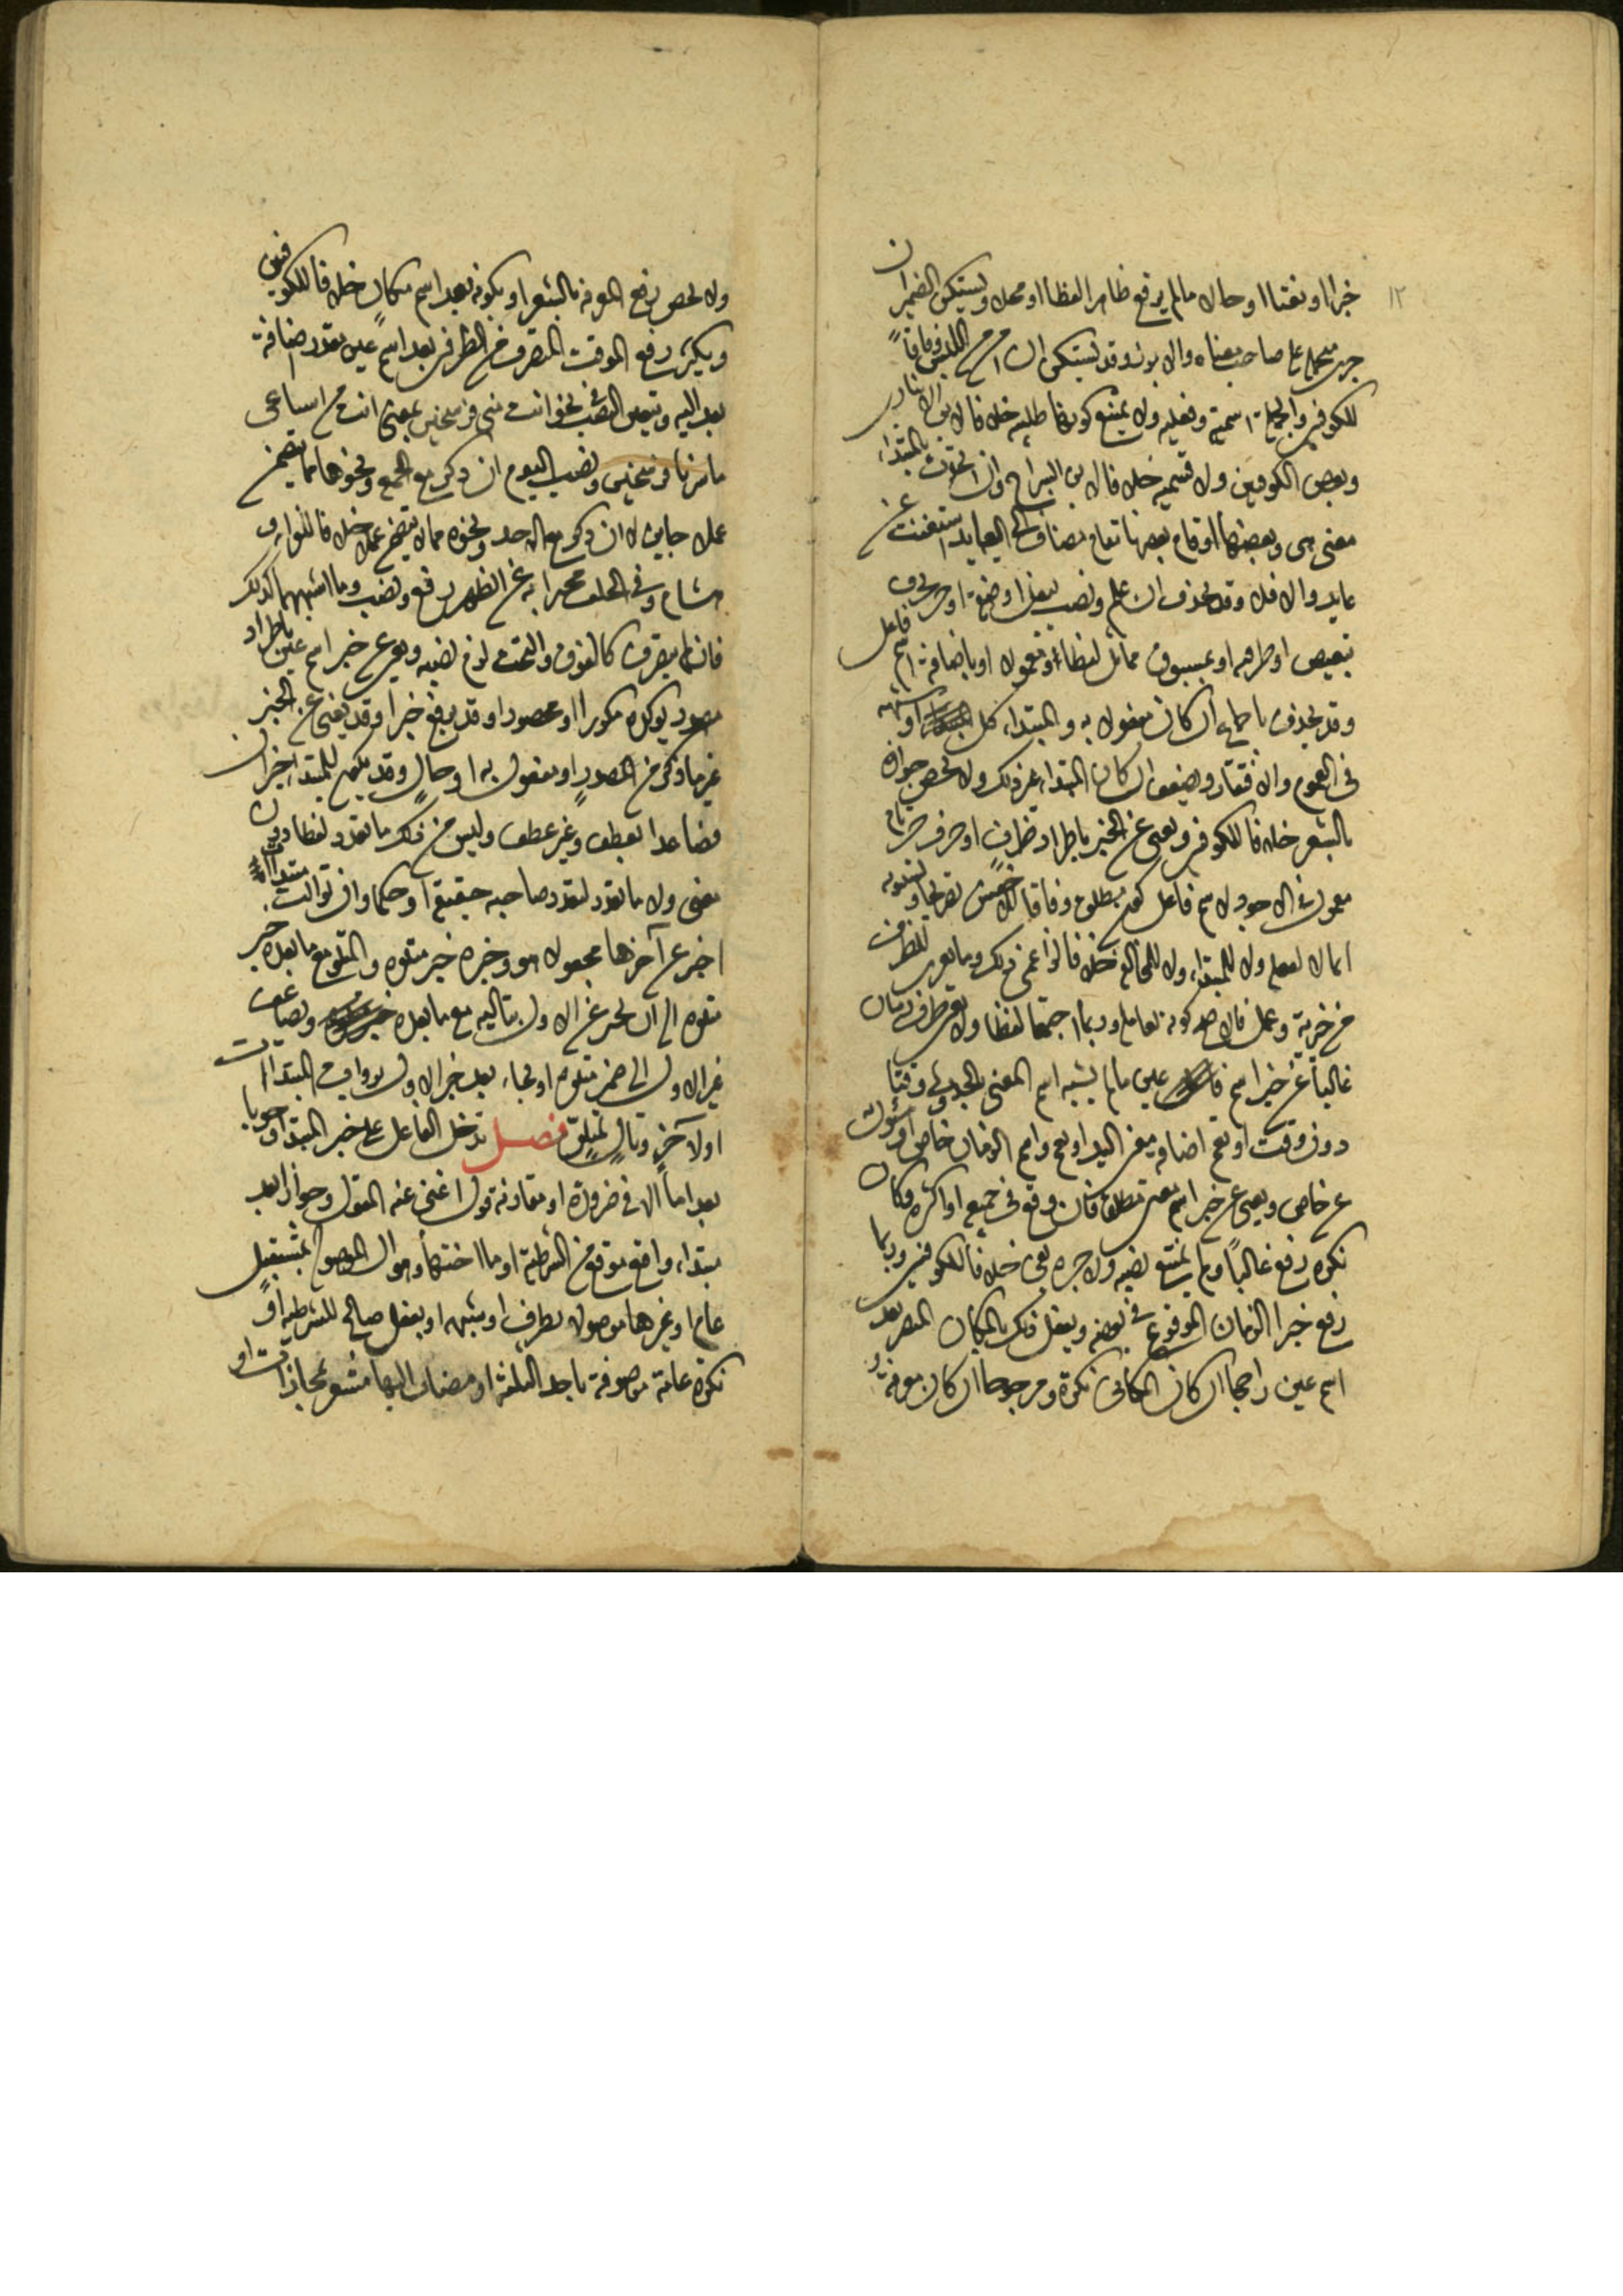 ١٢
خبرا او نعتا او حالا ما لم يرفع ظاهرا لفظا او محلا ويستكن الضمير ان
جرى متحمله على صاحب معناه والا برز وقد يستكن ان امن اللبس وفاقاً
للكوفيين والجملة اسمية وفعلية ولا يمتنع كونها طلبية خلافا لابن الانباري
وبعض الكوفيين ولا قسمية خلافا لابن السراج وان اتحدت بالمبتداء
معنى هي وبعضها او قام بعضها مقام مضاف الى العايد استغنت عن
عايد والا فلا وقد يحذف ان علم ونصب بفعل او صفة او جر بحرف
تبعيض او ظرفية او بمسبوق مماثل لفظا ومعمولا او باضافة اسم فاعل
وقد يحذف باجماع ان كان مفعولا به والمبتداء كل او شبهه
في العموم والافتقار ويضعف ان كان المبتداء غير ذلك ولا يخص جوازه
بالشعر خلافا للكوفيين ويغني عن الخبر باطراد ظرف او حرف جر تام
معمول في الاجود لاسم فاعل كون مطلق وفاقا للاخفش تصريحا ولسيبويه
ايماءلا لفعله ولا للمبتداء ولا للمخالفة خلافا لزاعمي ذلك وما يعزى للظرف
من خبرية وعمل فالاصح كونه لعامله وربما اجتمعا لفظا ولا يغني ظرف زمان
غالباً عن خبر اسم عين ما لم يشبه اسم المعنى بالحدوث وقتا
دون وقت او تعم اضافة معنى اليه او يعم واسم الزمان خاص او مسؤل به
عن خاص ويغني عن خبر اسم معنى مطلقا فان وقع في جميعه او اكثره وكان
نكرة رفع غالباً ولم يمتنع نصبه ولا جره بفي خلافا للكوفيين وربما
رفع خبرا الزمان الموقوع في بعضه ويفعل ذلك بالمكان المتصرف بعد
اسم عين راجحا ان كان المكاني نكرة ومرجوحا ان كان معرفة
ولا يخص رفع المعرفة بالشعر او بكونه بعد اسم مكان خلافا للكوفيين
ويكثر رفع الموقت المتصرف من الظرفين بعد اسم عين مقدر اضافة
بعد اليه ويتعين النصب في نحو انت مني فرسخين بمعنى انت من اشياعي
ما سرنا فرسخين ونصب اليوم ان ذكر مع الجمعة ونحوها مما يتضمن
عملا جايز لا ان ذكر مع الاحد ونحوه مما لا يتضمن عملا خلافا للفراء و
هشام وفي الخلف مخبرا به عن الظهر رفع ونصب وما اشبههما كذلك
فان لم يتصرف كالفوق والتحت لزم نصبه ويغني عن خبر اسم عين باطراد
مصدر يؤكده مكررا او محصورا وقد يرفع خبرا وقد يغني عن الخبر
غير ما ذكر من المصدر او مفعول به او حال وقد يكون للمبتداء خبران
فصاعدا بعطف وغير عطف وليس من ذلك ما تعدد لفظا دون
معنى ولا ما تعدد لتعدد صاحبه حقيقة او حكما وان توالت مبتدآت
اخبر عن آخرها مجعولا هو وخبره خبر متلوه والمتلو مع ما بعده خبر
متلوه الى ان تخبر عن الاول بتاليه مع ما بعده ويضاف
غير الاول الى ضمير متلوه او يجاء بعد خبر الاول بروابط المبتدآت
اولا لآخر وتال لمتلو فصل تدخل الفاء على خبر المبتداء وجوبا
بعد اما الا في ضرورة او مقارنة قول اغنى عنه المقول وجوازا بعد
مبتداء واقع موقع من الشرطية او ما اختها وهو ال الموصولة بمستقبل
عام او غيرها موصولا بظرف او شبهه او بفعل صالح للشرطية او
نكرة عامة موصوفة باحد الثلثة او مضاف اليها مشعر بمجازات او